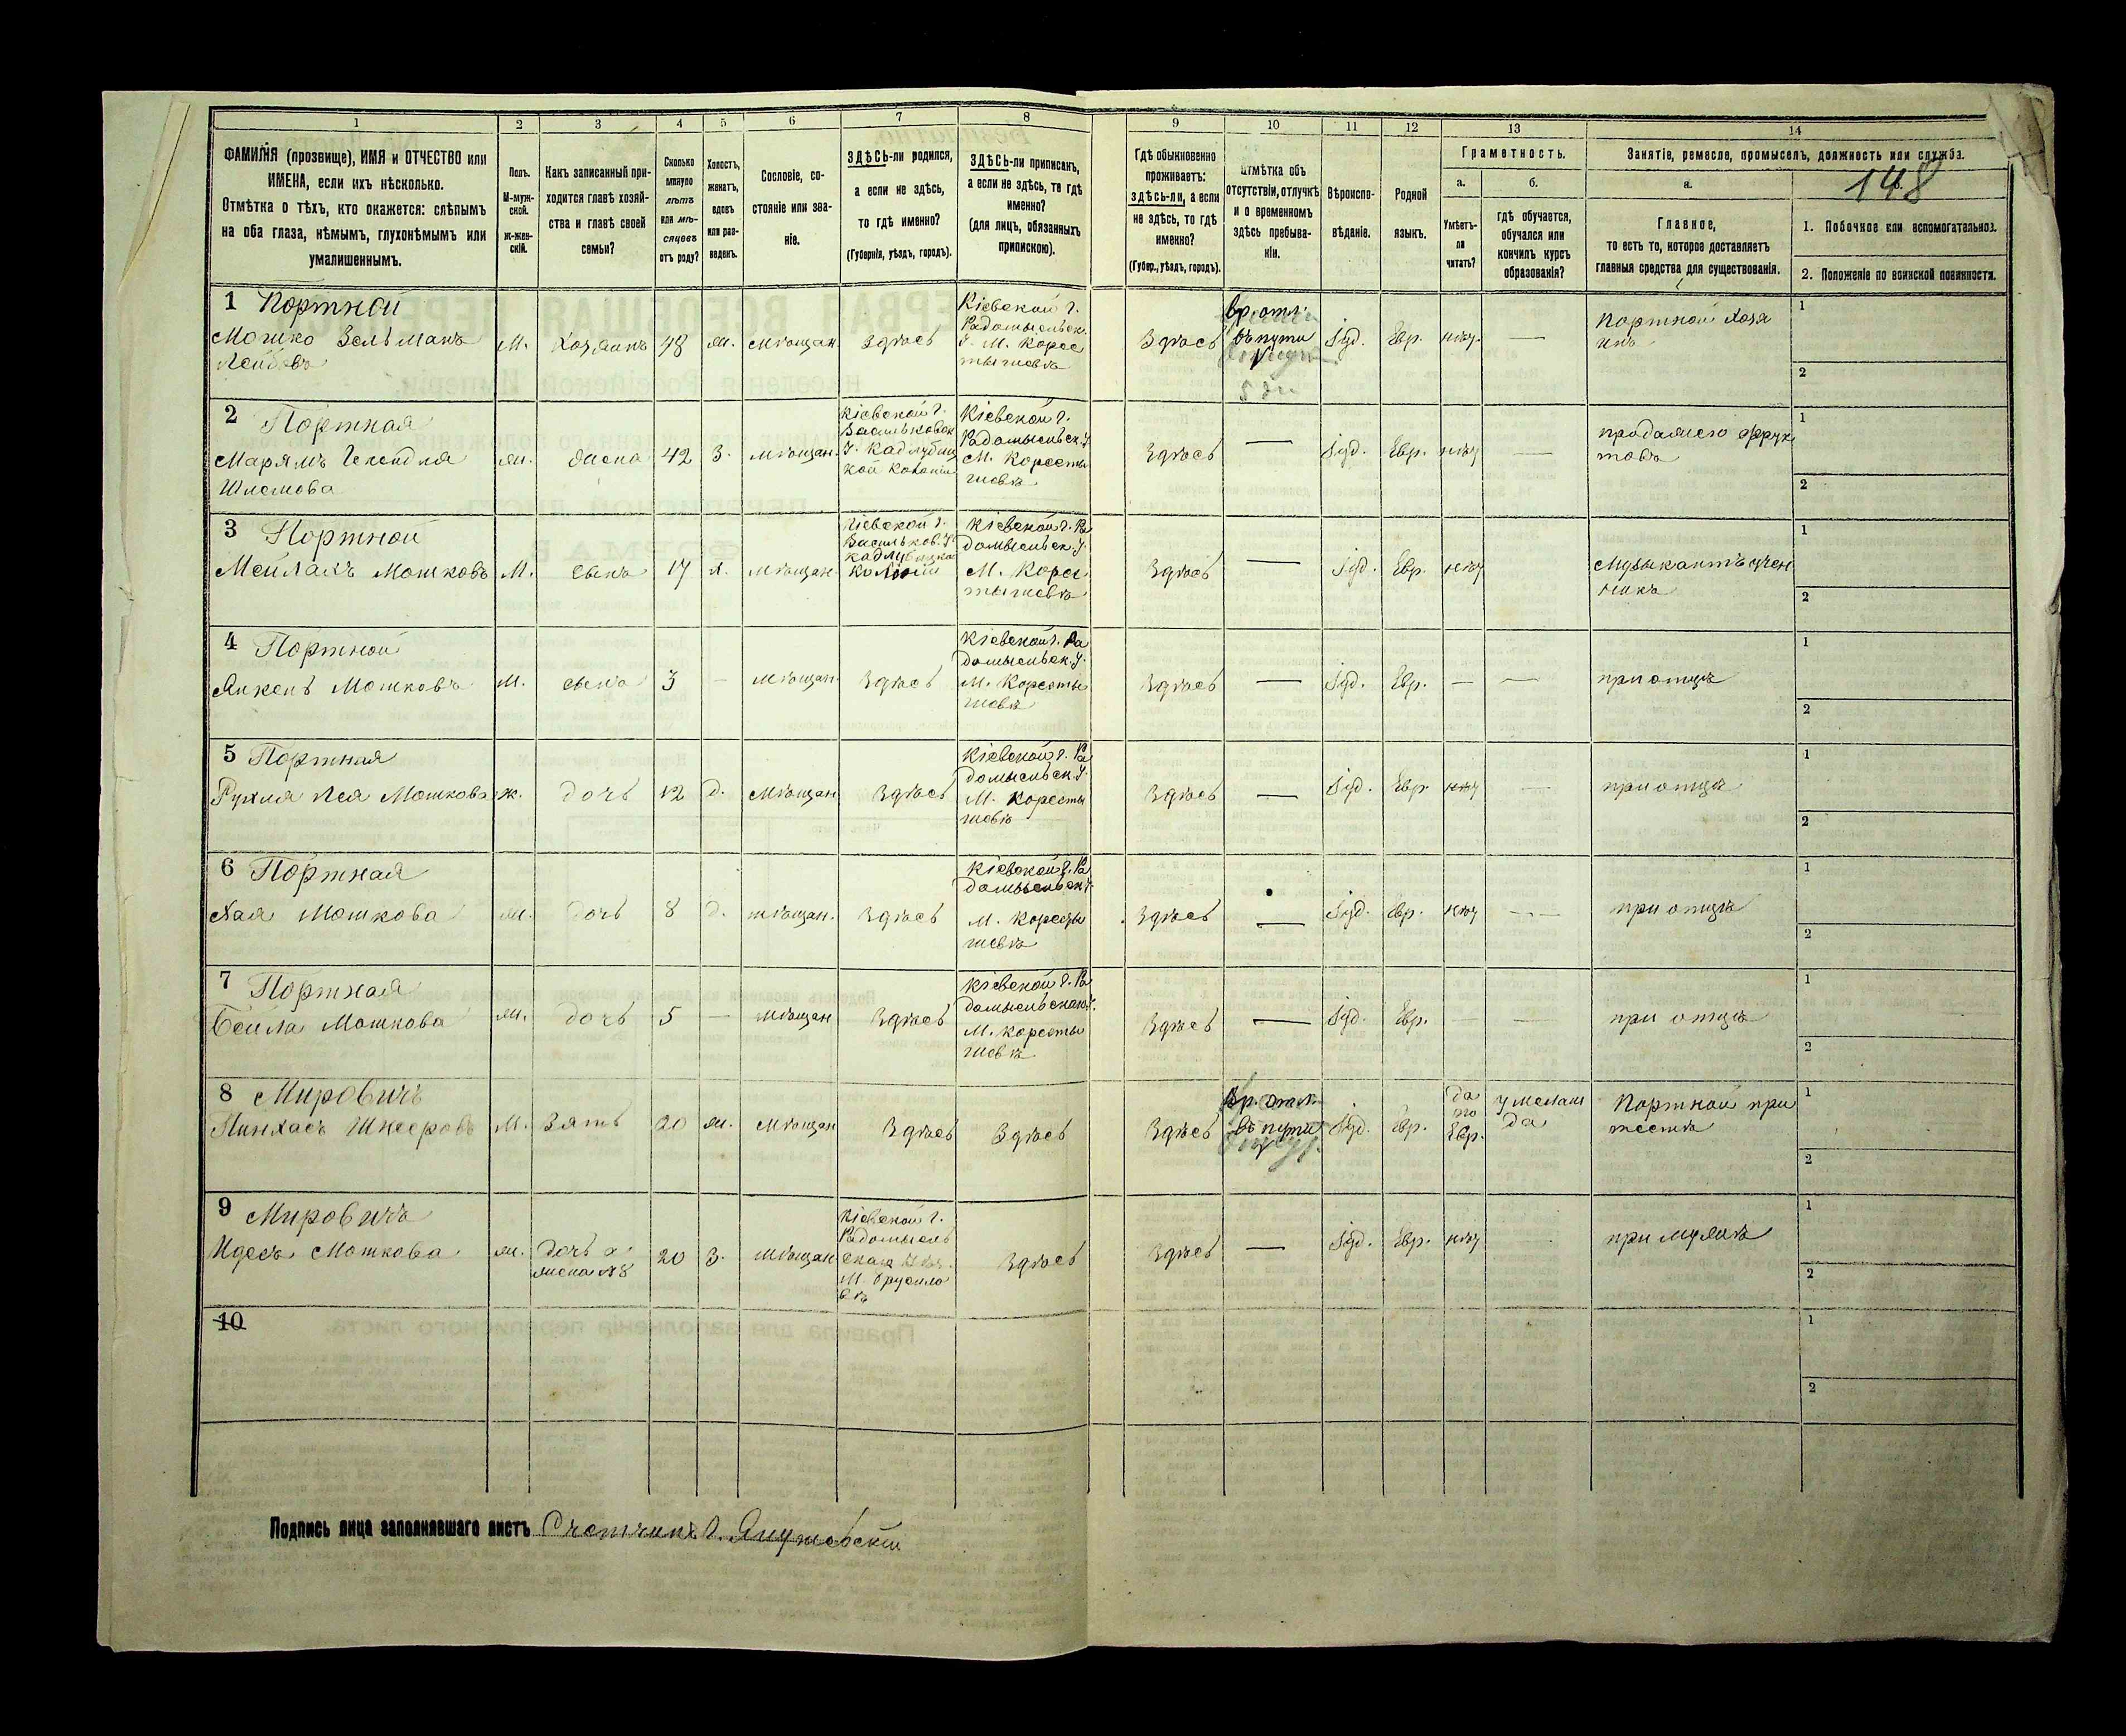 1
2
3
4
5
6
7
8
9
10
11
12
13
14
ФАМИЛІЯ (прозвище), ИМЯ и ОТЧЕСТВО или
ИМЕНА, если ихъ нѣсколько.
Отмѣтка о тѣхъ, кто окажется: слѣпымъ
на оба глаза, нѣмымъ, глухонѣмымъ или
умалишеннымъ.
Полъ.
М-муж-
ской.
Ж-жен-
скій.
Какъ записанный при-
ходится главѣ хозяй-
ства и главѣ своей
семьи?
Сколько
минуло
лѣтъ
или мѣ-
сяцевъ
отъ роду?
Холостъ,
женатъ,
вдовъ
или раз-
веденъ.
Сословіе, со-
стояніе или зва-
ніе.
ЗДѢСЬ-ли родился,
а если не здѣсь,
то гдѣ именно?
(Губернія, уѣздъ, городъ).
ЗДѢСЬ-ли приписанъ,
а если не здѣсь, то гдѣ
именно?
(для лицъ, обязанныхъ
припискою).
Гдѣ обыкновенно
проживаетъ:
здѣсь-ли, а если
не здѣсь, то гдѣ
именно?
(Губер., уѣздъ, городъ).
Отмѣтка объ
отсутствіи, отлучкѣ
и о временномъ
здѣсь пребыва-
ніи.
Вѣроиспо-
вѣданіе.
Родной
языкъ.
Грамотность.
а.
Умѣетъ-
ли
читать?
б.
гдѣ обучается,
обучался или
кончилъ курсъ
образованія?
Занятіе, ремесло, промыселъ, должность или служба.
148
а.
Главное,
то есть то, которое доставляетъ
главныя средства для существованія.
1. Побочное или вспомогательное.
2. Положеніе по воинской повинности.
1 Портной
Мошко Зельманъ
Лейбовъ
М. Хозяинъ 48 ж. мѣщан Здѣсь
Кіевской г.
Радомысльск.
У. М. Корос
тышевѣ
Здѣсь
вр. отл.
въ пути
Іуд. Евр. нѣт —
Портной хозя
инъ
1
2
2 Портная
Марьямъ
Шлемова
ж. жена 42 З. мѣщан.
Кіевской г.
Васильковск
У. Кадлубиц
кой колоніи
Кіевской г.
Радомысльск. У
М. Коросты
шевѣ
Здѣсь — Іуд. Евр. нѣт —
продажею фрук
товъ
1
2
3 Портной
Мейлахъ Мошковъ
М. сынъ 17 х. мѣщан.
Кіевской г.
Васильков. У.
колоніи
Кіевской г. Ра
домысльск. У.
М. Корос
тышевѣ
Здѣсь — Іуд. Евр. нѣт
Музыкантъ учен
никъ
1
2
4 Портной
Янкель Мошковъ
М. сынъ 3 — мѣщан. Здѣсь
Кіевской г. Ра
домысльск. У.
М. Коросты
шевѣ
Здѣсь — Іуд. Евр. — — при отцѣ
1
2
5 Портная
Рухля Лея Мошкова
ж. дочь 12 д. мѣщан Здѣсь
Кіевской г. Ра
домысльск. У.
М. Коросты
шевѣ
Здѣсь — Іуд. Евр. нѣт — при отцѣ
1
2
6 Портная
Хая Мошкова
ж. дочь 8 д. мѣщан. Здѣсь
Кіевской г. Ра
домысльск У.
М. Коросты
шевѣ
Здѣсь — Іуд. Евр. нѣт — при отцѣ
1
2
7 Портная
Бейла Мошкова
ж. дочь 5 — мѣщан Здѣсь
Кіевской г. Ра
домысльскаго У.
М. Коросты
шевѣ
Здѣсь — Іуд. Евр. — — при отцѣ
1
2
8 Мировичъ
Пинхасъ Шнееровъ
М. Зять 20 ж. мѣщан Здѣсь Здѣсь Здѣсь
вр. отл.
въ пути
Іуд. Евр.
да
по
Евр.
у мелам
да
Портной при
тестѣ
1
2
9 Мировичъ
Идесъ Мошкова
ж.
дочь а
жена №8
20 З. мѣщан
Кіевской г.
Радомысль
скаго
М. Брусило
вѣ
Здѣсь Здѣсь — Іуд. Евр. нѣт при мужѣ
1
2
10
1
2
Подпись лица заполнявшаго листъ Счетчикъ